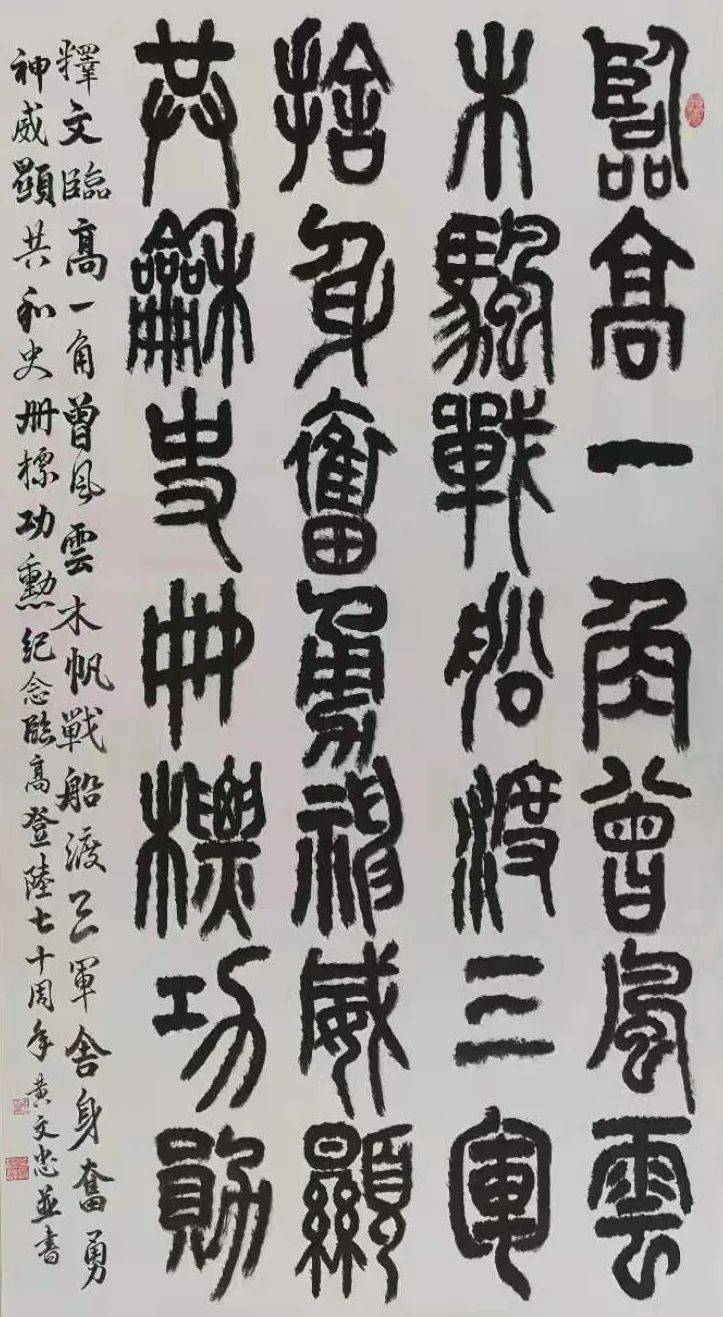 臨高一角曾風雲
木颿戰船渡三軍
捨身奮勇神威顯
共龢史冊標功勛
釋文臨高一角曾風雲木帆戰船渡三軍舍身奮勇
神威顯共和史冊標功勳紀念臨高登陸七十周年黄文忠並書